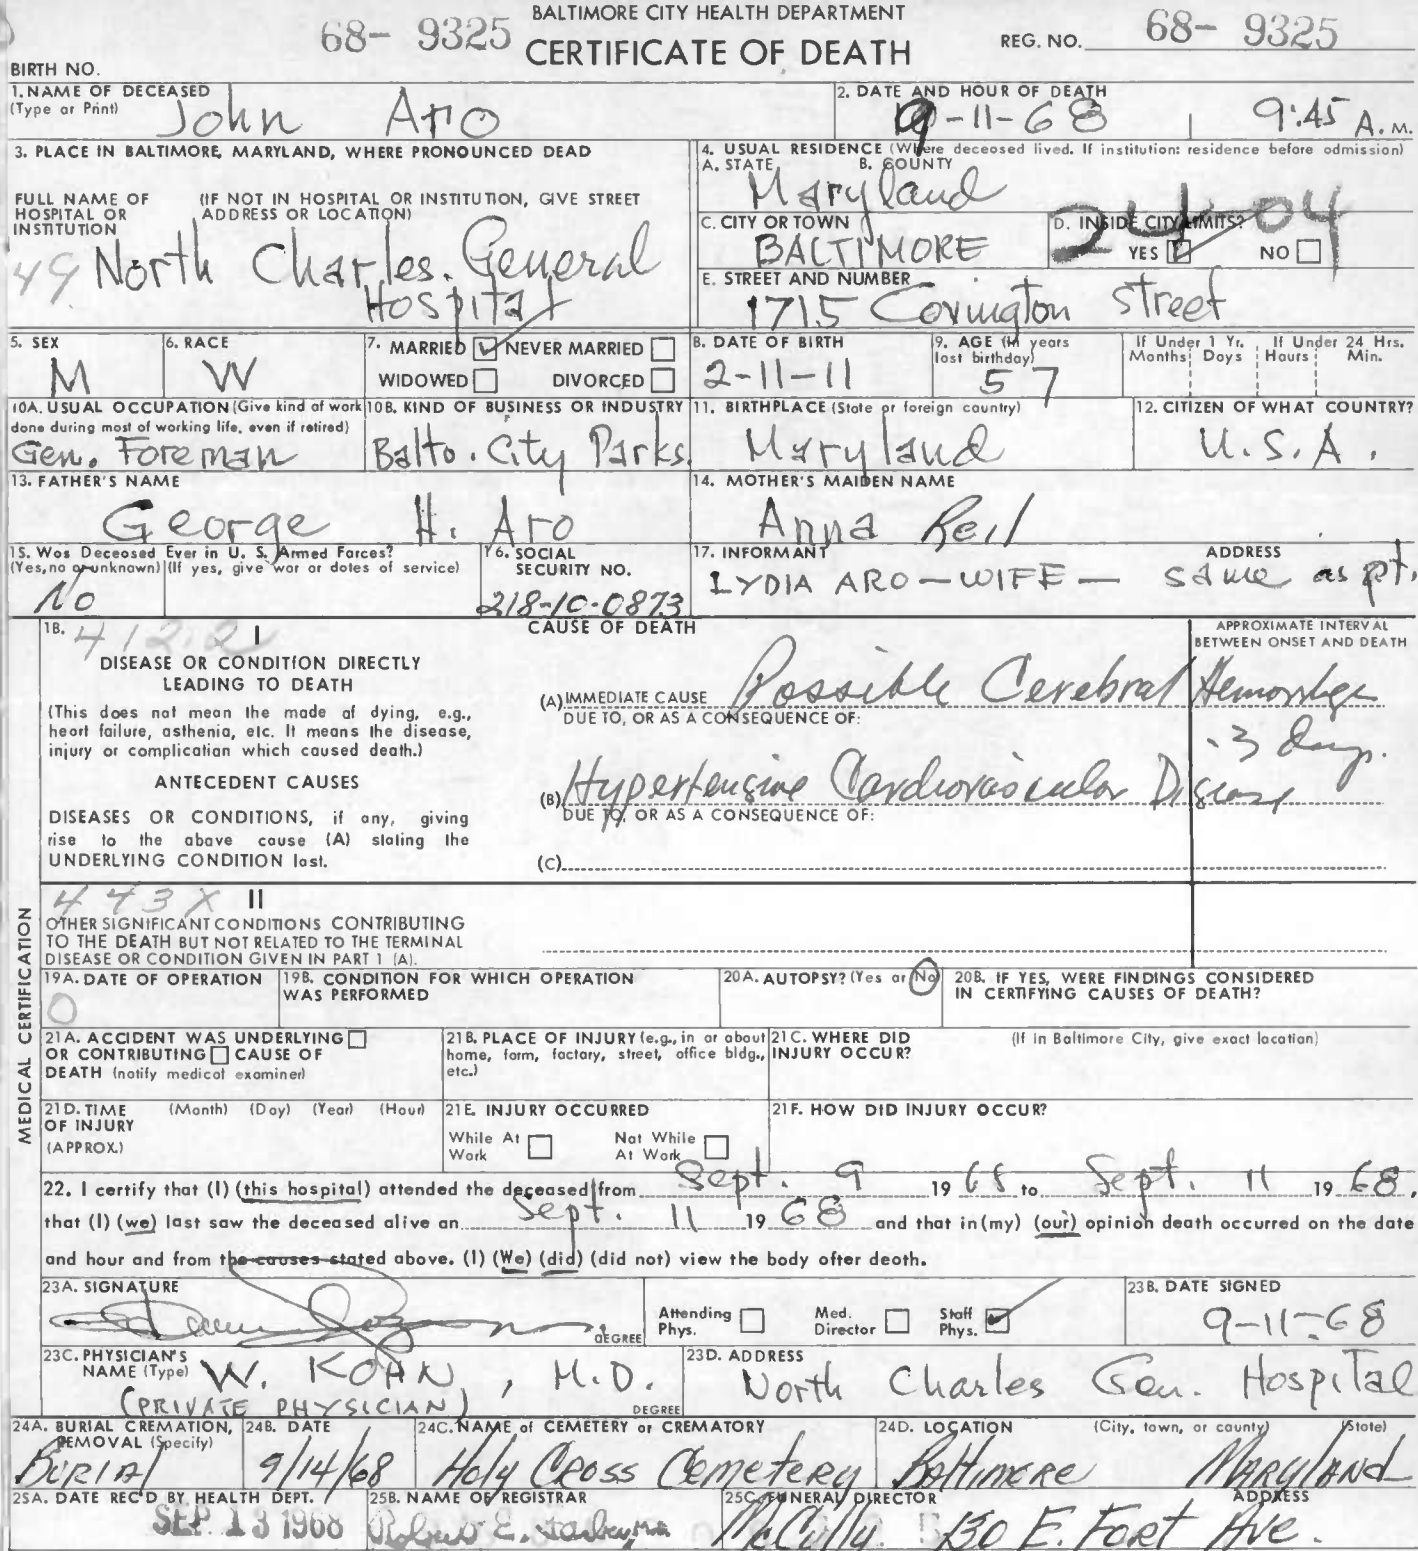 BALTIMORE CITY HEALTH DEPARTMENT
68- 9325 CERTIFICATE OF DEATH REG. NO. 68- 9325
BIRTH NO.
1. NAME OF DECEASED (Type or Print) John Aro
2. DATE AND HOUR OF DEATH 9-11-68 9:45 A. M.
3. PLACE IN BALTIMORE, MARYLAND, WHERE PRONOUNCED DEAD
FULL NAME OF HOSPITAL OR INSTITUTION (IF NOT IN HOSPITAL OR INSTITUTION, GIVE STREET ADDRESS OR LOCATION)
49 North Charles General
Hospital
4. USUAL RESIDENCE (Where deceased lived. If institution: residence before admission)
A. STATE B. COUNTY
Maryland
C. CITY OR TOWN
BALTIMORE
D. INSIDE CITY LIMITS? 24 04
YES NO
E. STREET AND NUMBER
1715 Covington Street
5. SEX M
6. RACE W
7. MARRIED NEVER MARRIED
WIDOWED DIVORCED
8. DATE OF BIRTH 2-11-11
9. AGE (in years last birthday) 57
If Under 1 Yr. Months Days
If Under 24 Hrs. Hours Min.
10A. USUAL OCCUPATION (Give kind of work done during most of working life, even if retired)
Gen. Foreman
10B. KIND OF BUSINESS OR INDUSTRY
Balto. City Parks.
11. BIRTHPLACE (State or foreign country)
Maryland
12. CITIZEN OF WHAT COUNTRY?
U.S.A.
13. FATHER'S NAME
George H. Aro
14. MOTHER'S MAIDEN NAME
Anna Reil
15. Was Deceased Ever in U. S. Armed Forces?
(Yes, no or unknown) (If yes, give war or dates of service)
No
16. SOCIAL SECURITY NO.
218-10-0873
17. INFORMANT ADDRESS
LYDIA ARO - WIFE - same as pt.
18. 412.2 I
DISEASE OR CONDITION DIRECTLY
LEADING TO DEATH
(This does not mean the mode of dying, e.g.,
heart failure, asthenia, etc. It means the disease,
injury or complication which caused death.)
ANTECEDENT CAUSES
DISEASES OR CONDITIONS, if any, giving
rise to the above cause (A) stating the
UNDERLYING CONDITION last.
CAUSE OF DEATH
APPROXIMATE INTERVAL
BETWEEN ONSET AND DEATH
(A) IMMEDIATE CAUSE Possible Cerebral Hemorrhage
DUE TO, OR AS A CONSEQUENCE OF:
3 days.
(B) Hypertensive Cardiovascular Disease
DUE TO, OR AS A CONSEQUENCE OF:
(C)
443X II
OTHER SIGNIFICANT CONDITIONS CONTRIBUTING
TO THE DEATH BUT NOT RELATED TO THE TERMINAL
DISEASE OR CONDITION GIVEN IN PART 1 (A).
MEDICAL CERTIFICATION
19A. DATE OF OPERATION
0
19B. CONDITION FOR WHICH OPERATION
WAS PERFORMED
20A. AUTOPSY? (Yes or No)
20B. IF YES, WERE FINDINGS CONSIDERED
IN CERTIFYING CAUSES OF DEATH?
21A. ACCIDENT WAS UNDERLYING
OR CONTRIBUTING CAUSE OF
DEATH (notify medical examiner)
21B. PLACE OF INJURY (e.g., in or about
home, farm, factory, street, office bldg.,
etc.)
21C. WHERE DID (If in Baltimore City, give exact location)
INJURY OCCUR?
21D. TIME (Month) (Day) (Year) (Hour)
OF INJURY
(APPROX.)
21E. INJURY OCCURRED
While At Work Not While At Work
21F. HOW DID INJURY OCCUR?
22. I certify that (I) (this hospital) attended the deceased from Sept. 9 1968 to Sept. 11 1968,
that (I) (we) last saw the deceased alive on Sept. 11 1968 and that in (my) (our) opinion death occurred on the date
and hour and from the causes stated above. (I) (We) (did) (did not) view the body after death.
23A. SIGNATURE
DEGREE
Attending Phys. Med. Director Staff Phys.
23B. DATE SIGNED
9-11-68
23C. PHYSICIAN'S NAME (Type) W. KOHN, M.D.
(PRIVATE PHYSICIAN) DEGREE
23D. ADDRESS
North Charles Gen. Hospital
24A. BURIAL CREMATION, REMOVAL (Specify)
BURIAL
24B. DATE
9/14/68
24C. NAME of CEMETERY or CREMATORY
Holy Cross Cemetery
24D. LOCATION (City, town, or county) (State)
Baltimore MARYLAND
25A. DATE REC'D BY HEALTH DEPT.
SEP 13 1968
25B. NAME OF REGISTRAR
Robert E. Farber, M.D.
25C. FUNERAL DIRECTOR ADDRESS
McCully 130 E. Fort Ave.